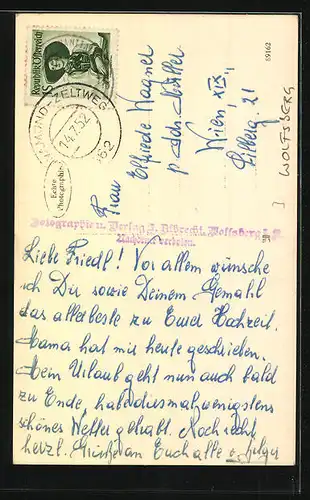 Republik Österreich
1S
GMUND-ZELTWEG
14.7.52
162
Echte
Photographie
69162
Frau Elfriede Wagner
p. Adr. Müller
Wien, XIX,
21
WOLFSBERG
Photographie u. Verlag J. Albrecht, Wolfsberg
Nachdruck verboten.
Liebe Friedl! Vor allem wünsche
ich Dir sowie Deinem Gemahl
das allerbeste zu Eurer Hochzeit.
Mama hat mir heute geschrieben.
Mein Urlaub geht nun auch bald
zu Ende, habe diesmal wenigstens
schönes Wetter gehabt. Noch recht
herzl. Grüße an Euch alle v. Helga